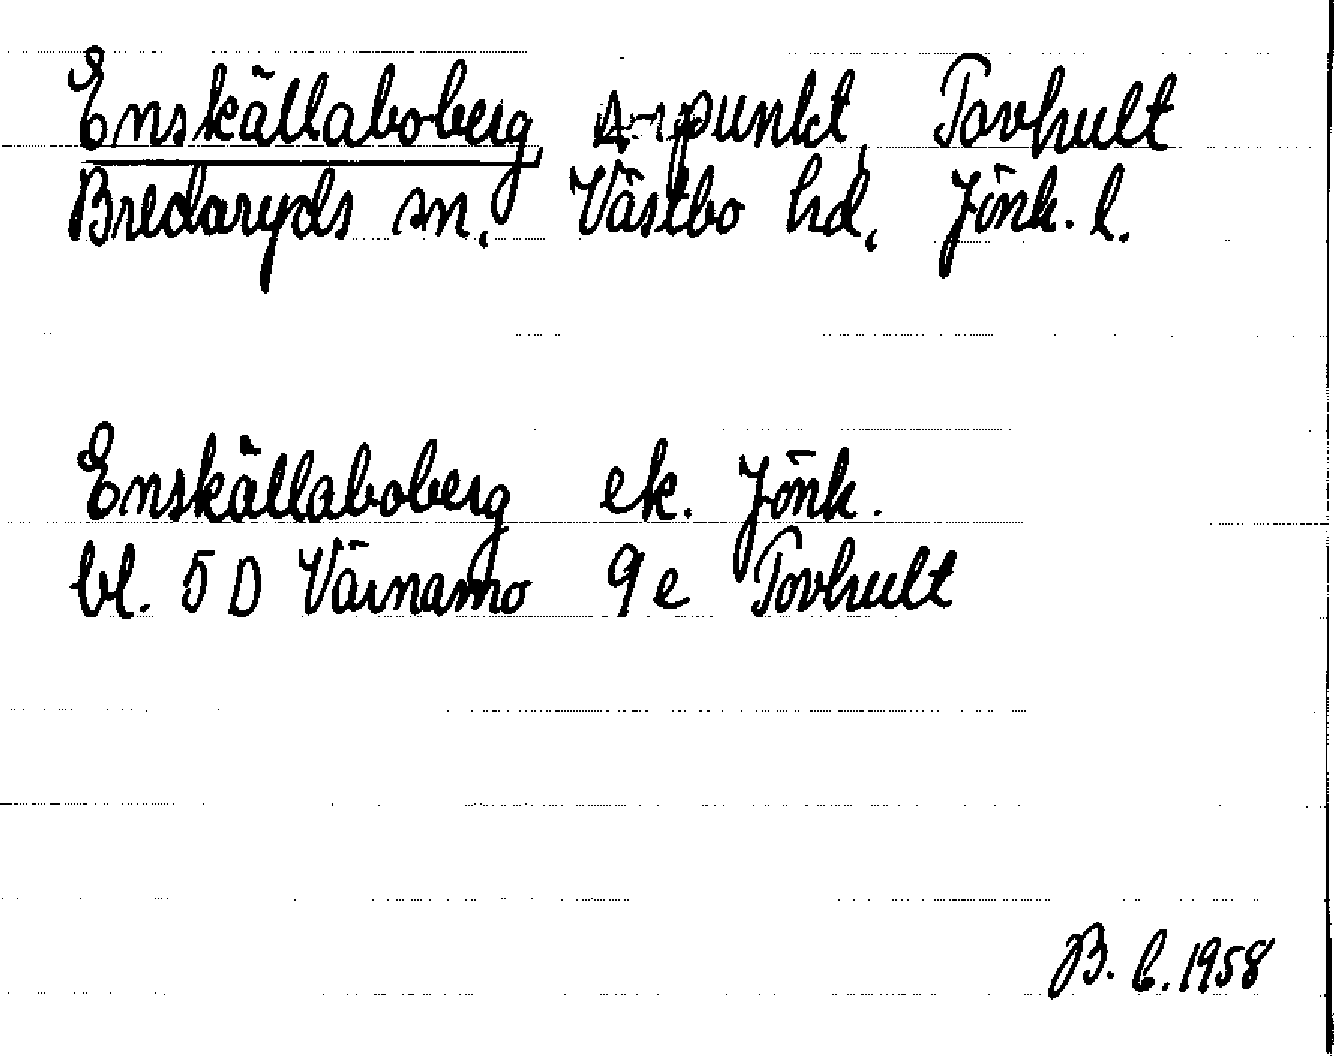 Enskällaboberg, △-punkt, Tovhult
Bredaryds sn, Västbo hd, Jönk. l.
Enskällaboberg ek. Jönk.
bl. 5 D Värnamo 9 e Tovhult
B. L. 1958